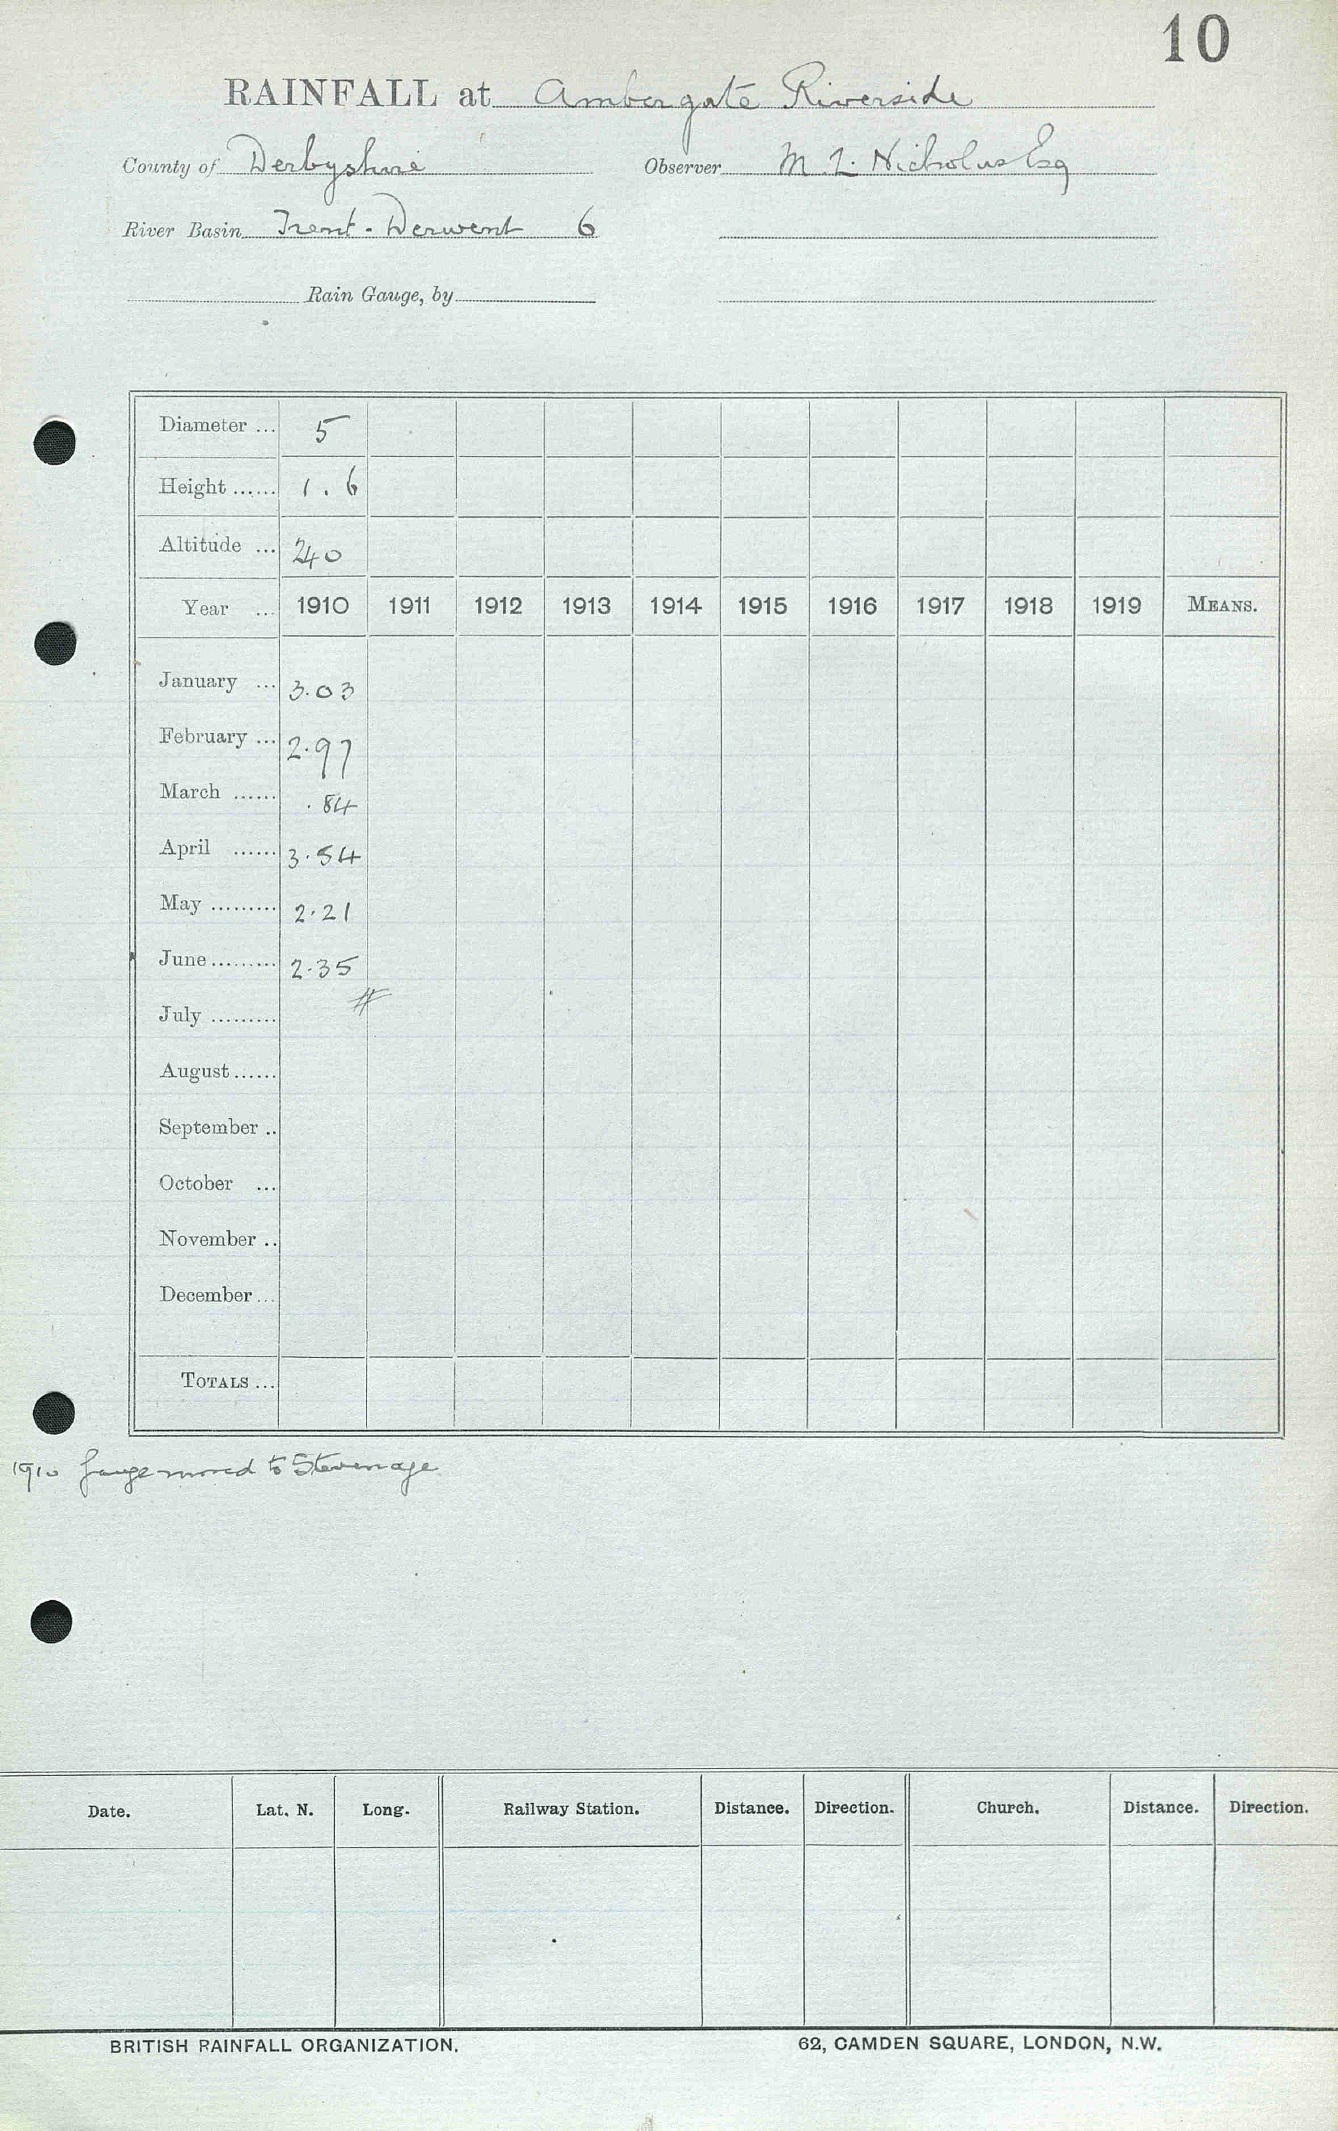 10
RAINFALL at Ambergate Riverside
County of Derbyshire Observer M. L. Nicholas Esq
River Basin Trent - Derwent 6
Rain Gauge, by
Diameter ... 5
Height ...... 1.6
Altitude ... 240
Year ... 1910 1911 1912 1913 1914 1915 1916 1917 1918 1919 MEANS.
January ... 3.03
February ... 2.97
March ...... .84
April ...... 3.54
May ......... 2.21
June ......... 2.35
#
July .........
August ......
September ..
October ...
November ..
December ...
TOTALS ...
1910 Gauge moved to Stevenage
Date. Lat. N. Long. Railway Station. Distance. Direction. Church. Distance. Direction.
BRITISH RAINFALL ORGANIZATION. 62, CAMDEN SQUARE, LONDON, N.W.